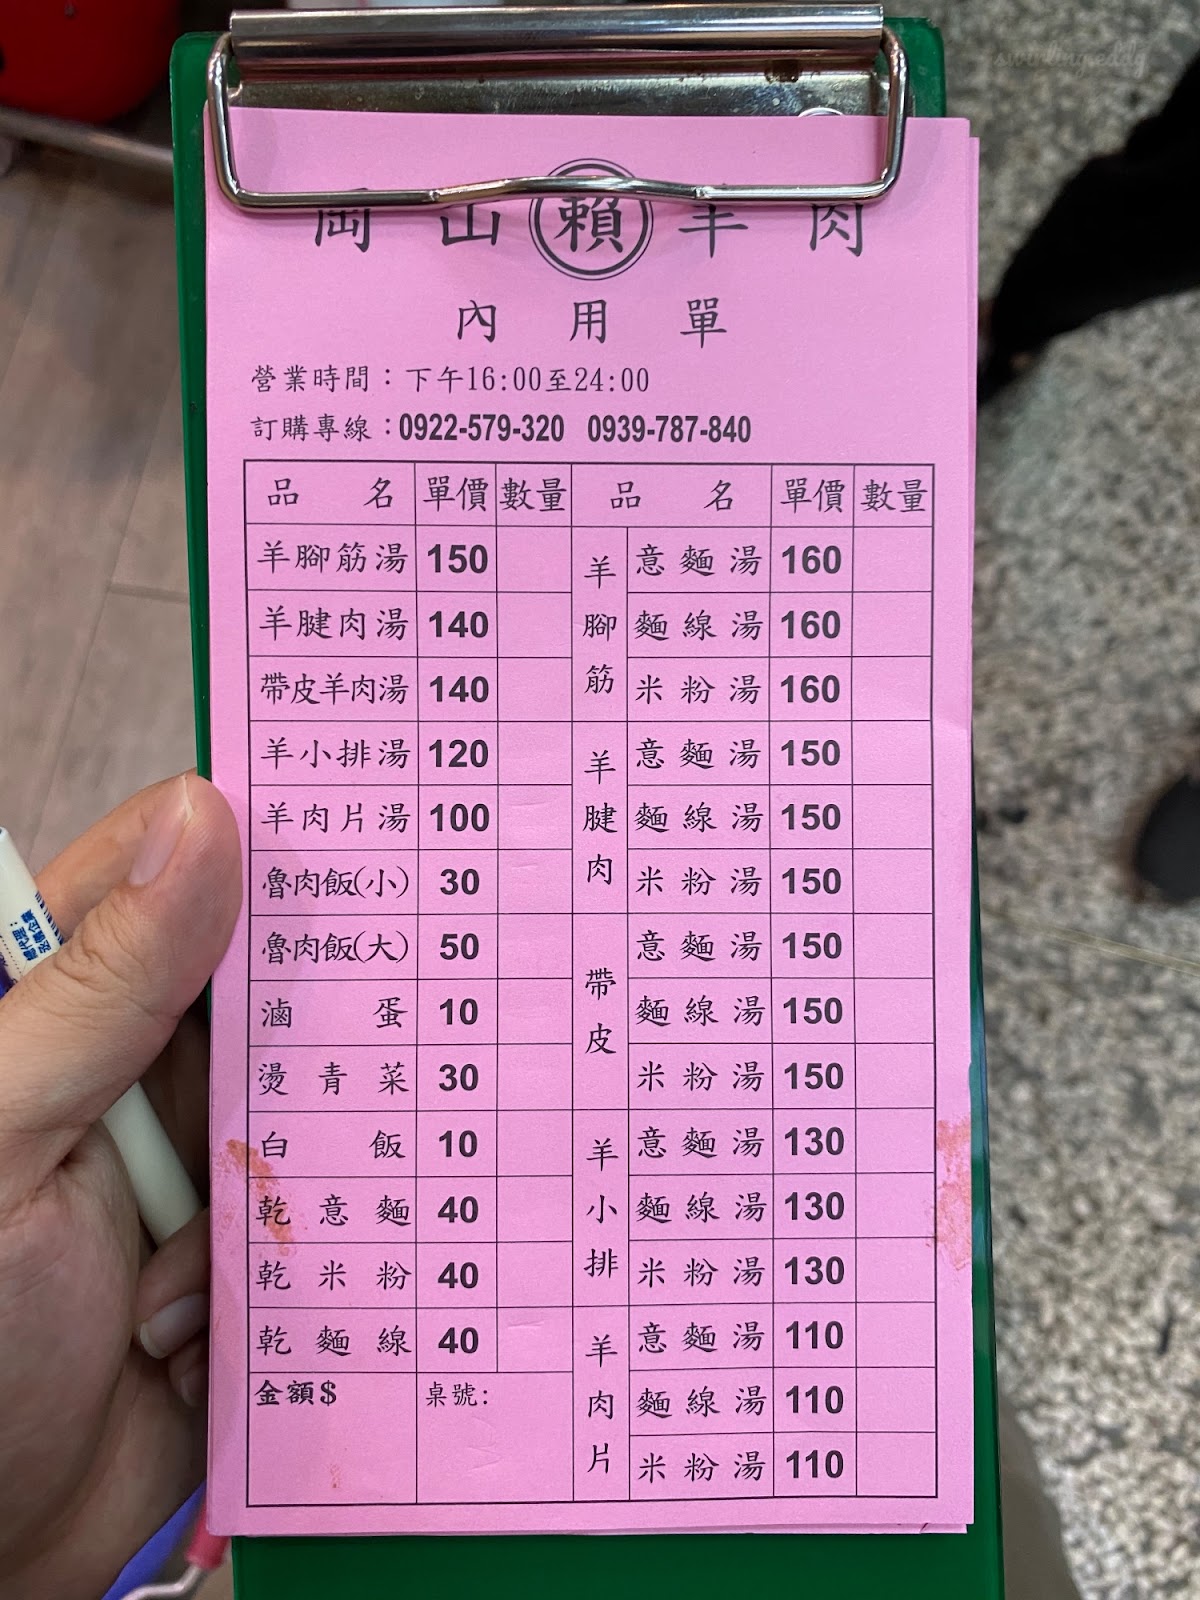 swirling.eddy
岡山賴羊肉
內用單
營業時間：下午16:00至24:00
訂購專線：0922-579-320 0939-787-840
品名 單價 數量 品名 單價 數量
羊腳筋湯 150 羊腳筋 意麵湯 160
羊腱肉湯 140 麵線湯 160
帶皮羊肉湯 140 米粉湯 160
羊小排湯 120 羊腱肉 意麵湯 150
羊肉片湯 100 麵線湯 150
魯肉飯(小) 30 米粉湯 150
魯肉飯(大) 50 帶皮 意麵湯 150
滷蛋 10 麵線湯 150
燙青菜 30 米粉湯 150
白飯 10 羊小排 意麵湯 130
乾意麵 40 麵線湯 130
乾米粉 40 米粉湯 130
乾麵線 40 羊肉片 意麵湯 110
金額$ 桌號: 麵線湯 110
米粉湯 110